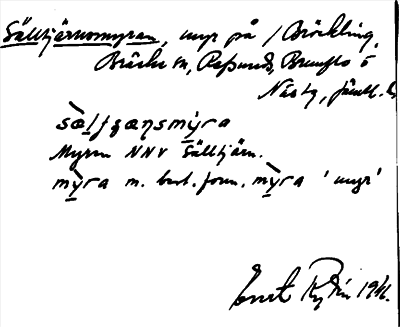 Sälltjärnsmyran, myr på / Bräckling,
Bräcke sn, Refsunds, Brunflo o
Näs tg, Jämtl. l.
sæ̀lʃæɳsmýra
Myren NNV Sälltjärn.
mỳra m. best. form. mỳra 'myr'
Ernst Rydén 1941.